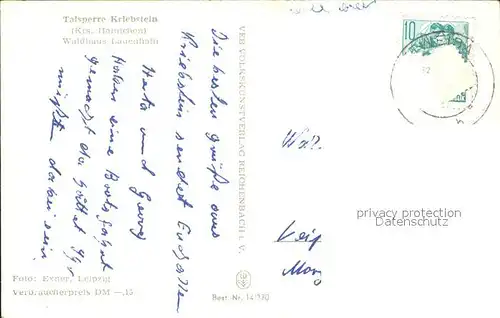 Talsperre Kriebstein
(Krs. Hainichen)
Waldhaus Lauenhain
Die besten Grüße aus
Kriebstein sendet Euch allen
Herta und Georg
Haben eine Bootsfahrt
gemacht da hättet Ihr
müßen dabei sein.
Foto: Exner, Leipzig
Verbraucherpreis DM —,15
VEB VOLKSKUNSTVERLAG REICHENBACH i. V.
Best.-Nr. 14/530
10
privacy protection
Datenschutz
Leip